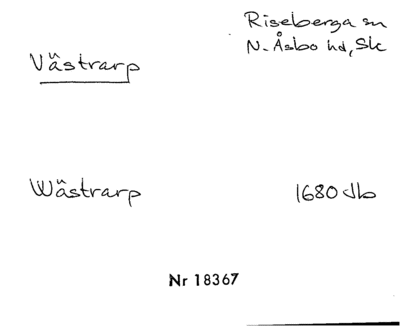 Riseberga sn
N. Åsbo hd, Sk
Västrarp
Wästrarp 1680 Jb
Nr 18367